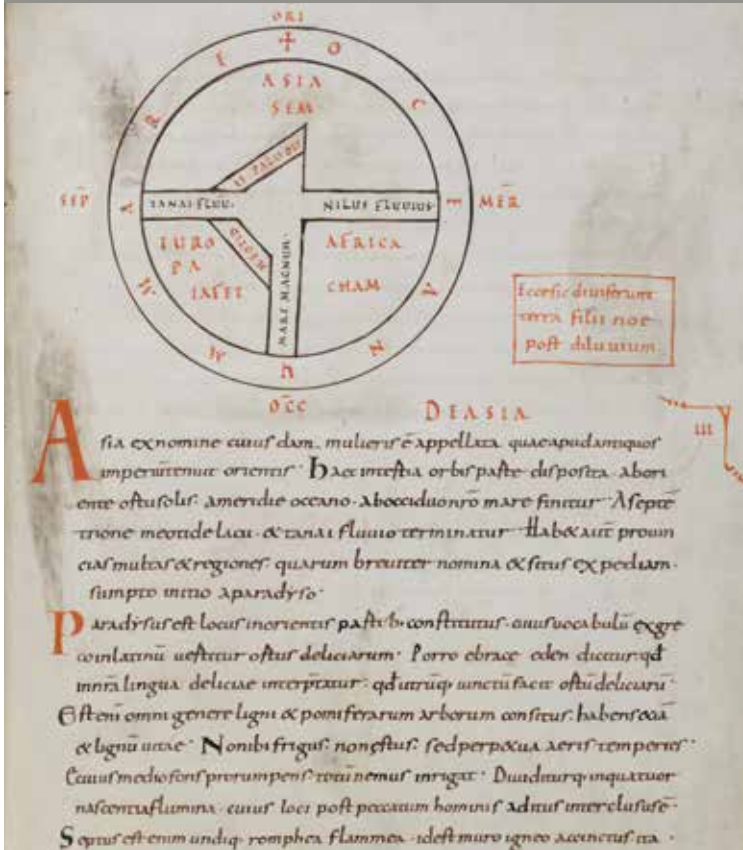 ORI
MARE OCEANUM
ASIA
SEM
IS PALUDES
SEP̄
TANAI FLUU·
NILUS FLUUIUS·
MER̄
EURO
PA
IAFET
MEOTID
MARE MAGNUM·
AFRICA
CHAM
Eccesic diuiserunt
terrã filii noe
post diluuium·
OC̄C
DEASIA
III
Asia exnomine cuiusdam· mulieris ē appellata quaeapudantiquos
imperiũtenuit orientis· haec intertia orbisparte disposita· abori
ente ortusolis· ameridie oceano· abocciduonr̄o mare finitur· Aseptē
trione meotidelacu· & tanai fluuioterminatur· Hab&aut̄ prouin
ciasmultas &regiones· quarum breuiter nomina &situs expediam·
sumpto initio aparadyso·
Paradysusest locus inorientis partib; constitutus· cuiusuocabulũ exgre
coinlatinũ uertitur ortus deliciarum· Porro ebrace eden dicitur· qđ
innr̄a lingua deliciae interp̄tatur· qđutrũq; iunctũfacit ortũdeliciarũ·
Estenĩ omni genere ligni & pomiferarum arborum consitus· habens&iã
& lignũ uitae· Nonibifrigus· nonestus· sedperp&ua aeris temperies·
Ecuiusmedio fons prorumpens· totũnemus inrigat· Diuiditurq; inquatuor
nascentiaflumina· cuius loci post peccatum hominis aditus interclususē·
Septusest enim undiq; romphea flammea· idest muro igneo accinctus ita·